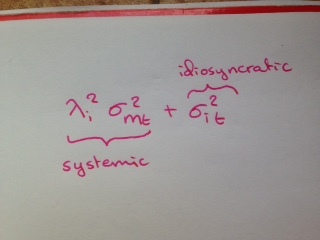 idiosyncratic
λᵢ² σ²ₘₜ + σ²ᵢₜ
systemic